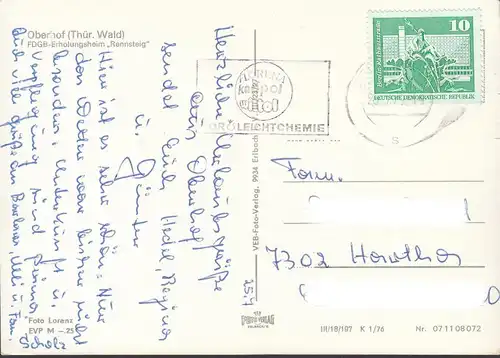 Oberhof (Thür. Wald)
FDGB-Erholungsheim „Rennsteig"
Herzliche Urlaubsgrüße
aus Oberhof
sendet Euch Hedel, Regina
u. Günter
Hier ist es sehr schön. Nur
das Wetter war bisher nicht
besonders. Unterkunft u.
Verpflegung sind prima.
Auch viele Grüße an Barbara, u. Fam.
Scholz
25.7.
Foto Lorenz
EVP M –,25
VEB-Foto-Verlag, 9934 Erlbach
FLORENA
ka pol
tol
ROLEICHTCHEMIE
10
DEUTSCHE DEMOKRATISCHE REPUBLIK
S
Fam.
7302
III/18/187 K 1/76
Nr. 071108072